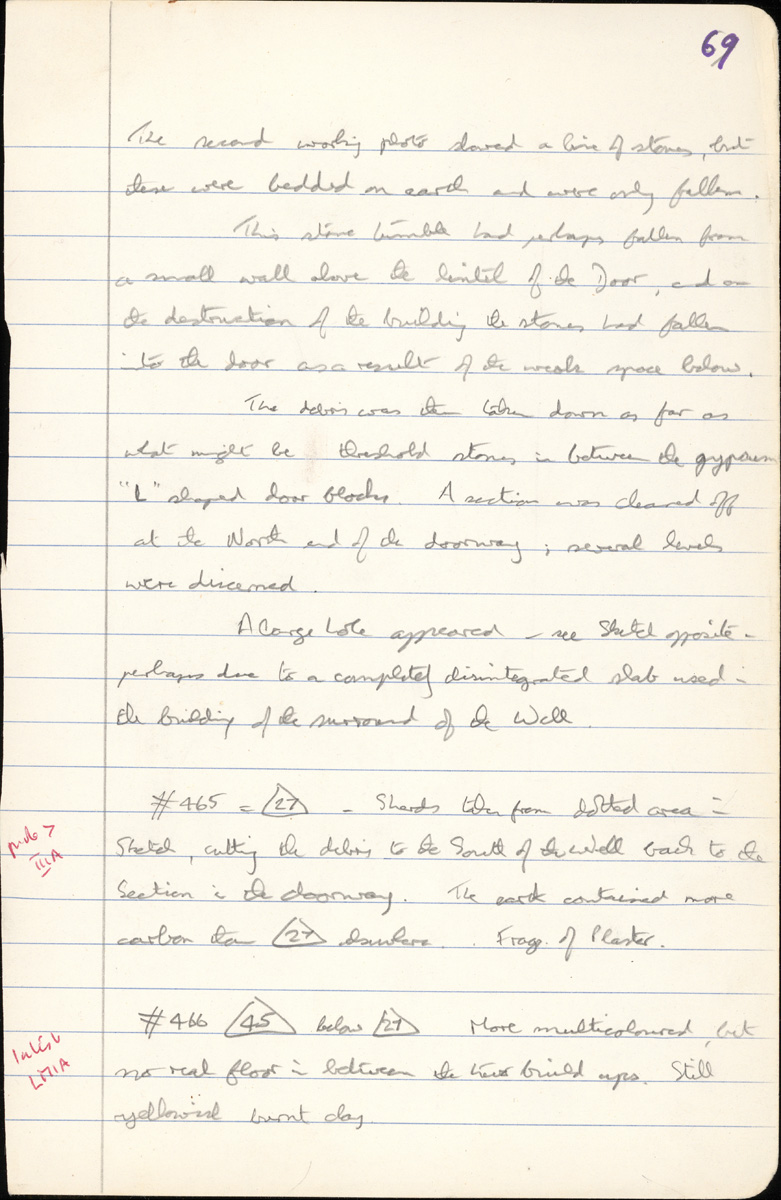 69
The second working photo showed a line of stones, but
these were bedded on earth and were only fallen.
This stone tumble had perhaps fallen from
a small wall above the lintel of the Door, and on
the destruction of the building the stones had fallen
into the door as a result of the weak space below.
The debris was then taken down as far as
what might be threshold stones in between the gypsum
"L" shaped door blocks. A section was cleaned off
at the North end of the doorway; several levels
were discerned.
A large hole appeared - see Sketch opposite -
perhaps due to a completely disintegrated slab used in
the building of the surround of the Well.
#465 = 27 - Sherds taken from dotted area in
IIIA
Sketch, cutting the debris to the South of the Well back to the
Section in the doorway. The earth contained more
carbon than 27 elsewhere. Frags. of Plaster.
#466 45 below 27 More multicoloured, but
LMIA
no real floor in between the two build ups. Still
yellowish burnt clay